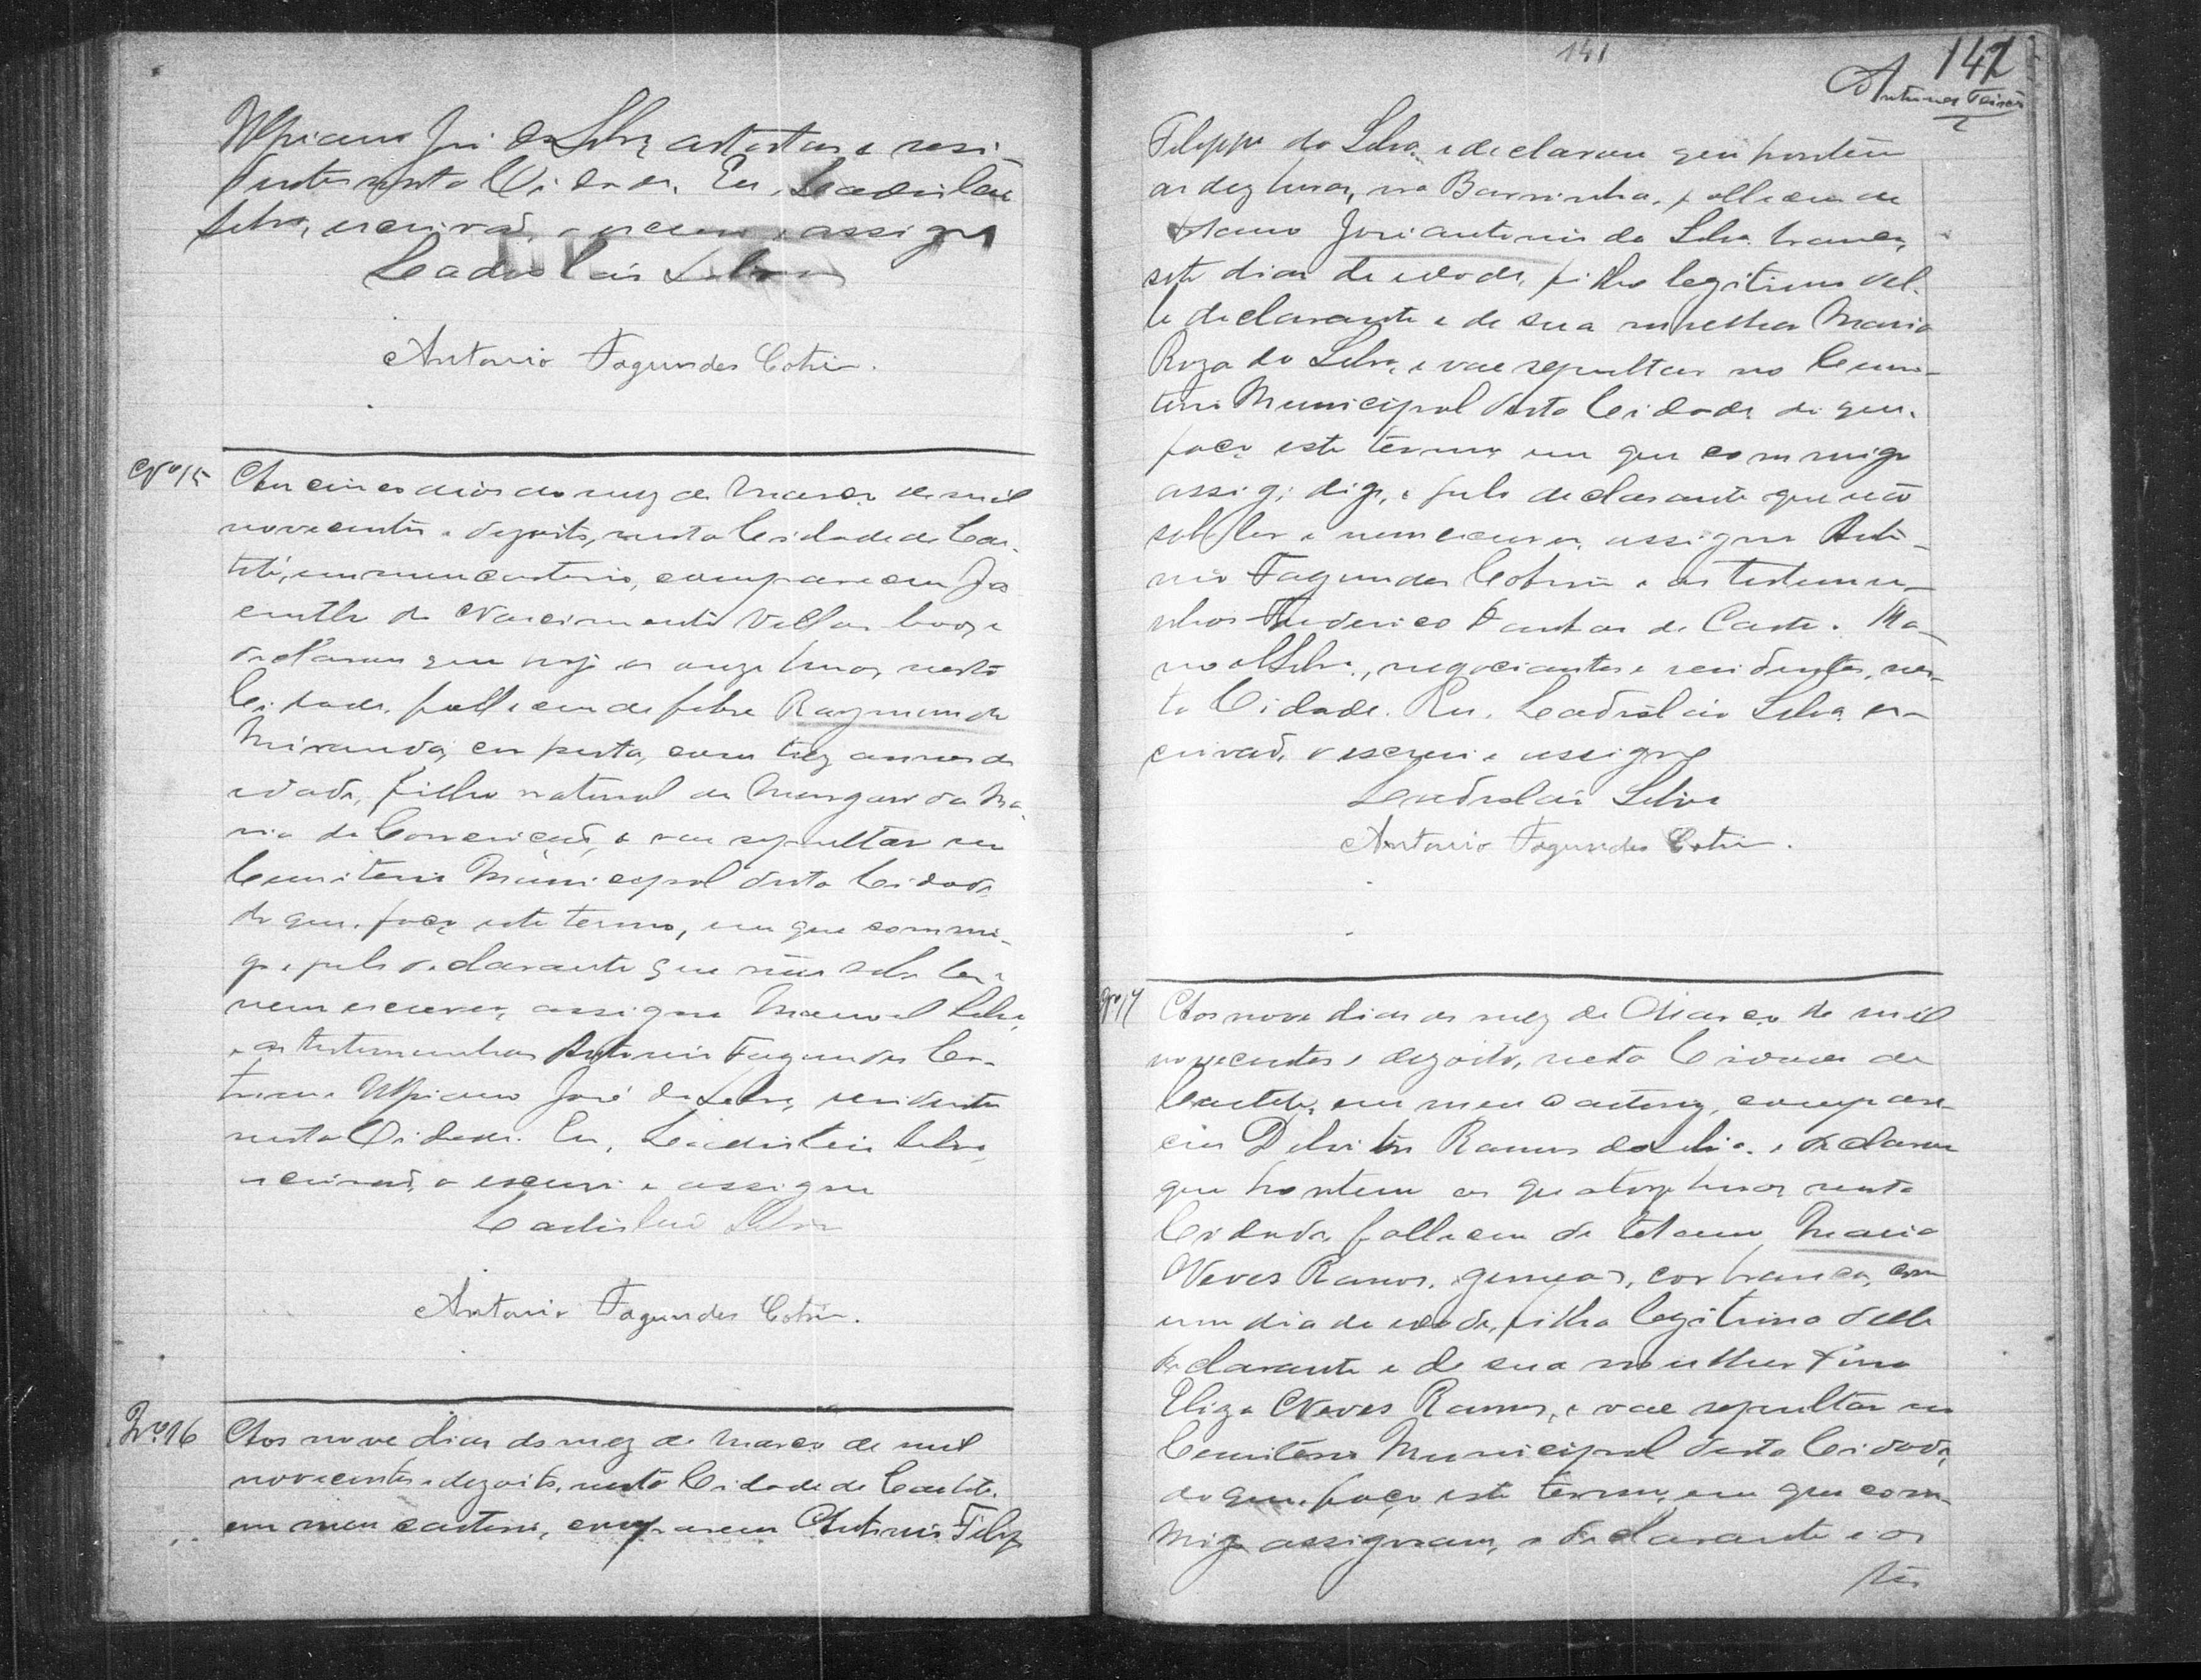 Ulpiano José da Silva artistas e resi-
dentes nesta Cidade. Eu, Ladislau
Silva, escrivão, o escrevi e assigno
Ladislau Silva
Antonio Fagundes Cotrim.
Nº 15
Aos cinco dias do mez de Março de mil
novecentos e dezoito, nesta Cidade de Cae-
tité, em meu cartorio, compareceu Ja
cintho do Nascimento Villas boas e
declarou que hoje as onze horas nesta
Cidade, falleceu de febre Raymundo
Miranda, cor preta, com trez annos de
idade, filho natural de Margarida Ma
ria da Conceição, e vae sepultar no
Cemiterio Municipal desta Cidade
do que, faço este termo, em que commi-
go e pelo declarante que não sabe ler
nem escrever, assigna Manoel Silva,
e as testemunhas Antonio Fagundes Co-
trim e Ulpiano José da Silva, residentes
nesta Cidade. Eu, Ladislau Silva,
escrivão, o escrevi e assigno
Ladislau Silva
Antonio Fagundes Cotrim.
Nº 16
Aos nove dias do mez de Março de mil
novecentos e dezoito, nesta Cidade de Caetité,
em meu cartorio, compareceu Antonio Felip
141
142
Antunes
Felippe da Silva e declarou que hontem
as dez horas, na Barrinha, falleceu de
tetano José Antonio da Silva branco,
sete dias de idade, filho legitimo del-
le declarante e de sua mulher Maria
Roza da Silva, e vae sepultar no Cemi-
terio Municipal desta Cidade do que,
faço este termo em que commigo
assig, digo, e pelo declarante que não
sabe ler e nem escrever, assigna Anto-
nio Fagundes Cotrim e as testemu-
nhas Frederico Dantas de Castro e Ma-
noel Silva, negociantes e residentes, nes-
ta Cidade. Eu, Ladislau Silva es-
crivão, o escrevi e assigno
Ladislau Silva
Antonio Fagundes Cotrim.
Nº 17
Aos nove dias do mez de Março de mil
novecentos e dezoito, nesta Cidade de
Caetité, em meu cartorio, compare-
ceu Ramos da Silva e declarou
que hontem as quatorze horas nesta
Cidade, falleceu de tetano Maria
Neves Ramos, gemea, cor branca, com
um dia de idade, filha legitima delle
declarante e de sua mulher
Eliza Neves Ramos, e vae sepultar no
Cemiterio Municipal desta Cidade,
do que, faço este termo, em que com-
migo assignam, o declarante e as
tes